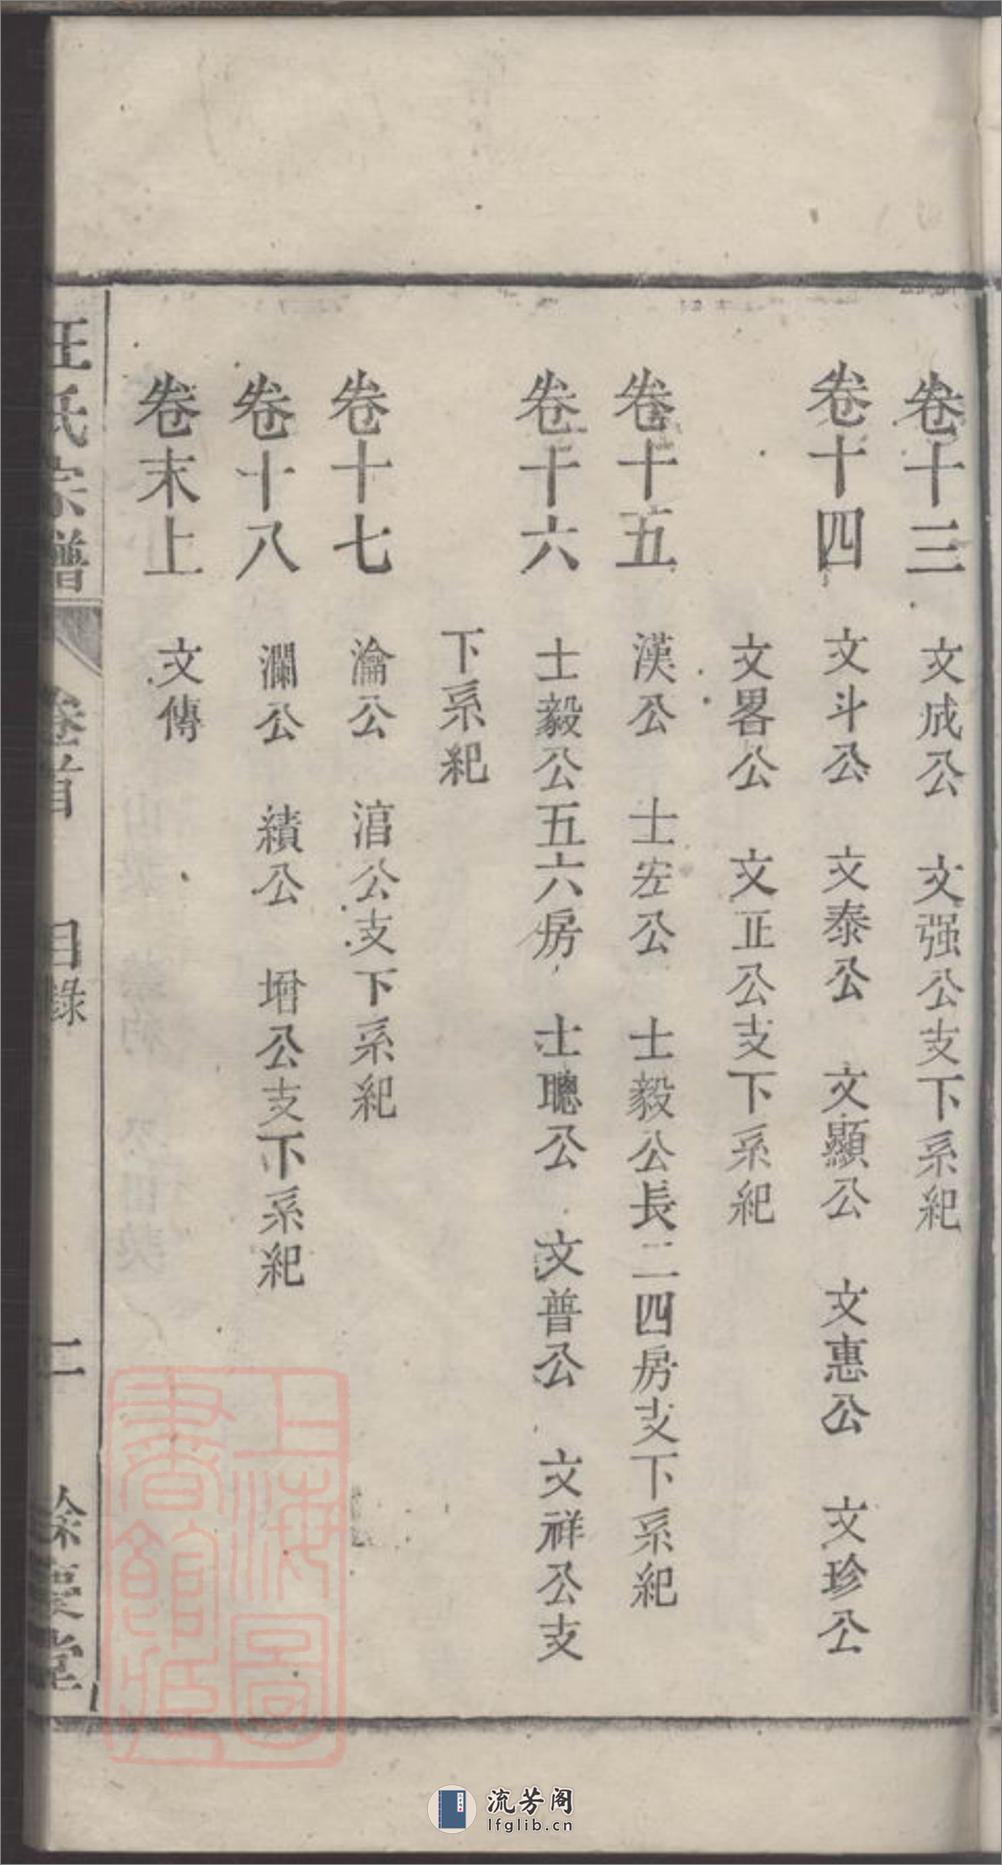 卷十三 文成公 文强公支下系紀
卷十四 文斗公 文泰公 文顯公 文惠公 文珍公
文畧公 文正公支下系紀
卷十五 漢公 士宏公 士毅公長二四房支下系紀
卷十六 士毅公五六房 士聰公 文普公 文祥公支
下系紀
卷十七 瀹公 涫公支下系紀
卷十八 瀾公 績公 增公支下系紀
卷末上 文傳
汪氏宗譜 卷首 目錄 二 餘慶堂
上海圖書館藏
流芳阁
lfglib.cn